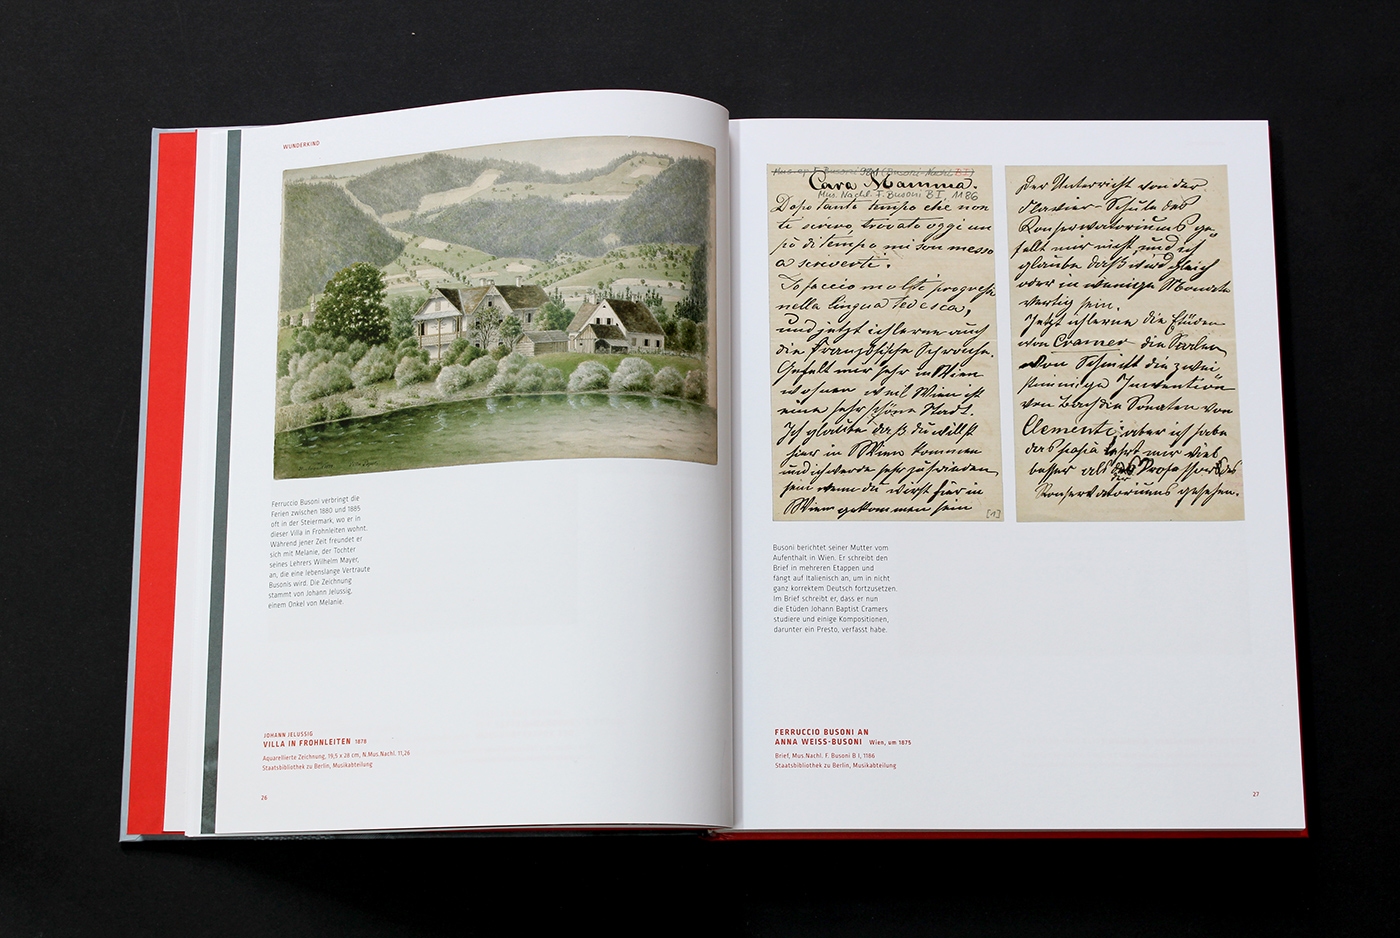 WUNDERKIND
Ferruccio Busoni verbringt die
Ferien zwischen 1880 und 1885
oft in der Steiermark, wo er in
dieser Villa in Frohnleiten wohnt.
Während jener Zeit freundet er
sich mit Melanie, der Tochter
seines Lehrers Wilhelm Mayer,
an, die eine lebenslange Vertraute
Busonis wird. Die Zeichnung
stammt von Johann Jelussig,
einem Onkel von Melanie.
JOHANN JELUSSIG
VILLA IN FROHNLEITEN 1878
Aquarellierte Zeichnung, 19,5 x 28 cm, N.Mus.Nachl. 11,26
Staatsbibliothek zu Berlin, Musikabteilung
26
Cara Mamma.
Mus. Nachl. F. Busoni B I, 1186
Dopo tanto tempo che non
ti scrivo, trovato oggi un
pò di tempo mi son messo
a scriverti.
Io faccio molti progressi
nella lingua tedesca,
und jetzt ich lerne auch
die französische Schprache.
Gefalt mir sehr in Wien
wohnen weil Wien ist
eine sehr schöne Stadt.
Ich glaube daß du willst
hier in Wien kommen
und ich werde sehr zufrieden
sein wenn du wirst hier in
Wien gekommen sein
[1]
Der Unterricht von der
Klavier-Schule des
Konservatoriums ge-
fällt mir nicht und ich
glaube daß wird gleich
oder in wenige Monate
fertig sein.
Jetzt ich lerne die Etüden
von Cramer die
von Schmitt die zwei
stimmige Invention
von Bach die Sonaten von
Clementi; aber ich habe
das papà lehrt mir viel
besser als Professor des
Konservatoriums gesehen.
Busoni berichtet seiner Mutter vom
Aufenthalt in Wien. Er schreibt den
Brief in mehreren Etappen und
fängt auf Italienisch an, um in nicht
ganz korrektem Deutsch fortzusetzen.
Im Brief schreibt er, dass er nun
die Etüden Johann Baptist Cramers
studiere und einige Kompositionen,
darunter ein Presto, verfasst habe.
FERRUCCIO BUSONI AN
ANNA WEISS-BUSONI Wien, um 1875
Brief, Mus.Nachl. F. Busoni B I, 1186
Staatsbibliothek zu Berlin, Musikabteilung
27